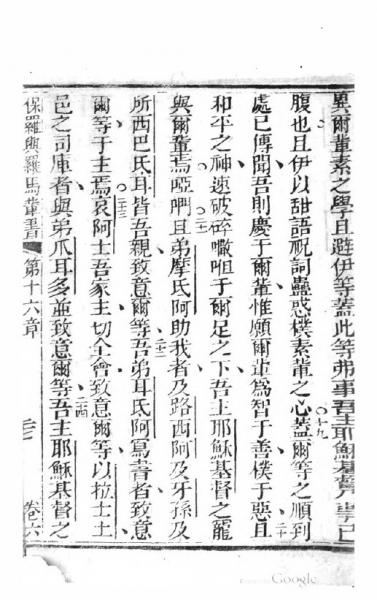 異爾輩素之學且避伊等蓋此等弗事吾主耶穌基督乃事己
腹也且伊以甜語祝詞蠱惑樸素輩之心蓋爾等之順到
十九
處已傳聞吾則慶于爾輩惟願爾輩為智于善樸于惡且
二十
和平之神速破碎𠿕咀于爾足之下吾主耶穌基督之寵
與爾輩焉啞門且弟摩氏阿助我者及路西阿及牙孫及
二一
所西巴氏耳皆吾親致意爾等吾弟耳氏阿寫書者致意
二二
爾等于主焉哀阿士吾家主切仝會致意爾等以拉士土
二三
邑之司庫者與弟爪耳多並致意爾等吾主耶穌基督之
二四
保羅與羅馬輩書 第十六章 卷六
Google